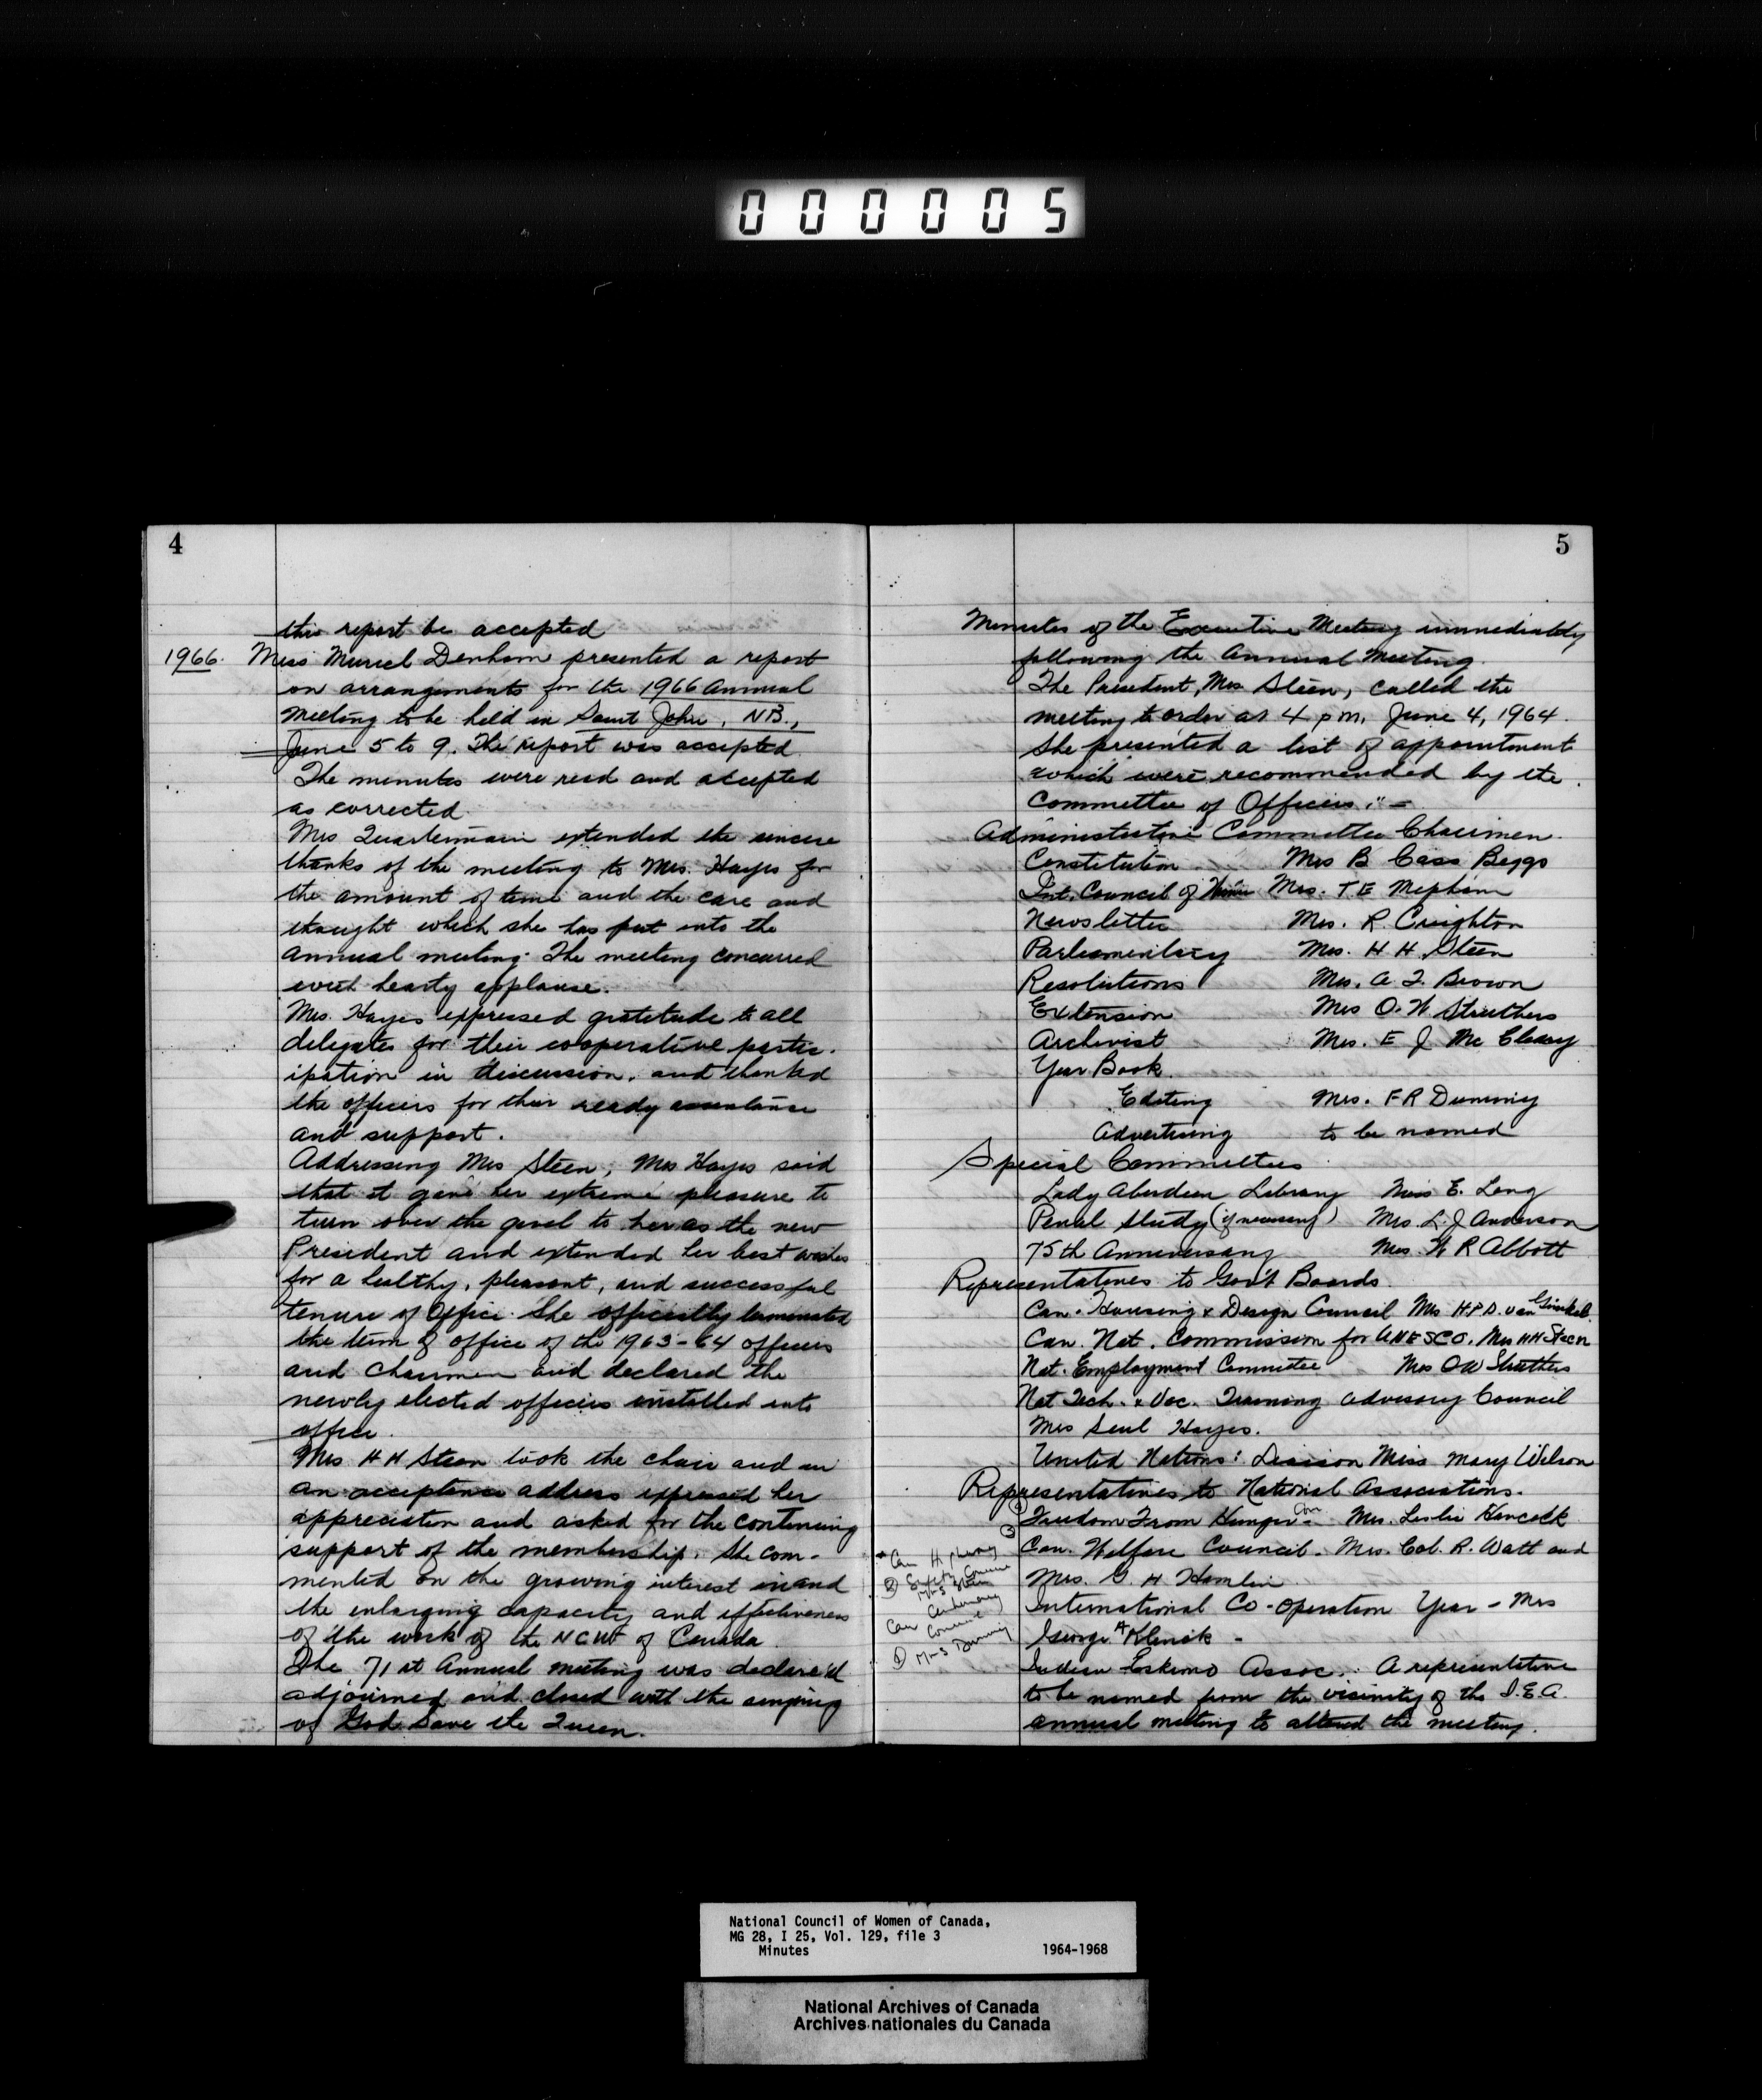 000005
4
this report be accepted
1966. Miss Muriel Denham presented a report
on arrangements for the 1966 Annual
Meeting to be held in Saint John, NB.,
June 5 to 9. The report was accepted.
The minutes were read and accepted
as corrected.
Mrs Quartermain extended the sincere
thanks of the meeting to Mrs. Hayes for
the amount of time and the care and
thought which she has put into the
annual meeting. The meeting concurred
with hearty applause.
Mrs. Hayes expressed gratitude to all
delegates for their cooperative partic-
ipation in discussion, and thanked
the officers for their ready assistance
and support.
Addressing Mrs Steen, Mrs Hayes said
that it gave her extreme pleasure to
turn over the gavel to her as the new
President and extended her best wishes
for a healthy, pleasant, and successful
tenure of Office. She officially terminated
the term of office of the 1963-64 officers
and Chairmen and declared the
newly elected officers installed into
office.
Mrs H H Steen took the chair and in
an acceptance address expressed her
appreciation and asked for the continuing
support of the membership. She com-
mented on the growing interest in and
the enlarging capacity and effectiveness
of the work of the NCW of Canada.
The 71st Annual meeting was declared
adjourned and closed with the singing
of God Save the Queen.
5
Minutes of the Executive Meeting immediately
following the Annual Meeting.
The President, Mrs Steen, called the
meeting to order at 4 p.m. June 4, 1964.
She presented a list of appointments
which were recommended by the
Committee of Officers:-
Administrative Committee Chairmen.
Constitution Mrs B Cass Beggs
Int. Council of Women Mrs. T.E Mepham
Newsletter Mrs. R. Creighton
Parliamentary Mrs. H H. Steen
Resolutions Mrs. A. F. Brown
Extension Mrs O. W. Struthers
Archivist Mrs. E J Mc Cleary
Year Book.
Editing Mrs. F R Dunning
Advertising to be named
Special Committees
Lady Aberdeen Library Miss E. Long
Penal Study (if necessary) Mrs. L. J Anderson
75th Anniversary Mrs. W R Abbott
Representatives to Gov't Boards.
Can. Housing & Design Council Mrs H.P.D. van Ginkel.
Can. Nat. Commission for UNESCO. Mrs HH Steen
Nat. Employment Committee Mrs OW Struthers
Nat Tech. & Voc. Training Advisory Council
Mrs Saul Hayes.
United Nations: Liaison Miss Mary Wilson
Representatives to National Associations.
Freedom From Hunger Com - Mrs. Leslie Hancock
Can. Welfare Council. Mrs. Col. R. Watt and
Mrs. G. H Hamlin
International Co-operation Year - Mrs
George A Klinck -
Indian Eskimo Assoc.: A representative
to be named from the vicinity of the I.E.A.
annual meeting to attend the meeting.
Can Highway
② Safety Council
Mrs Steen
Centenary
Can Council
① Mrs Dunning
National Council of Women of Canada,
MG 28, I 25, Vol. 129, file 3
Minutes 1964-1968
National Archives of Canada
Archives nationales du Canada